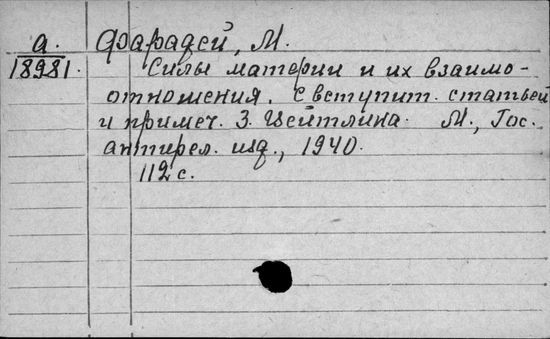 а. Фарадей, М.
18981. Силы материи и их взаимо-
отношения. С вступит. статьей
и примеч. З. Цейтлина. М., Гос.
антирел. изд., 1940.
112 с.